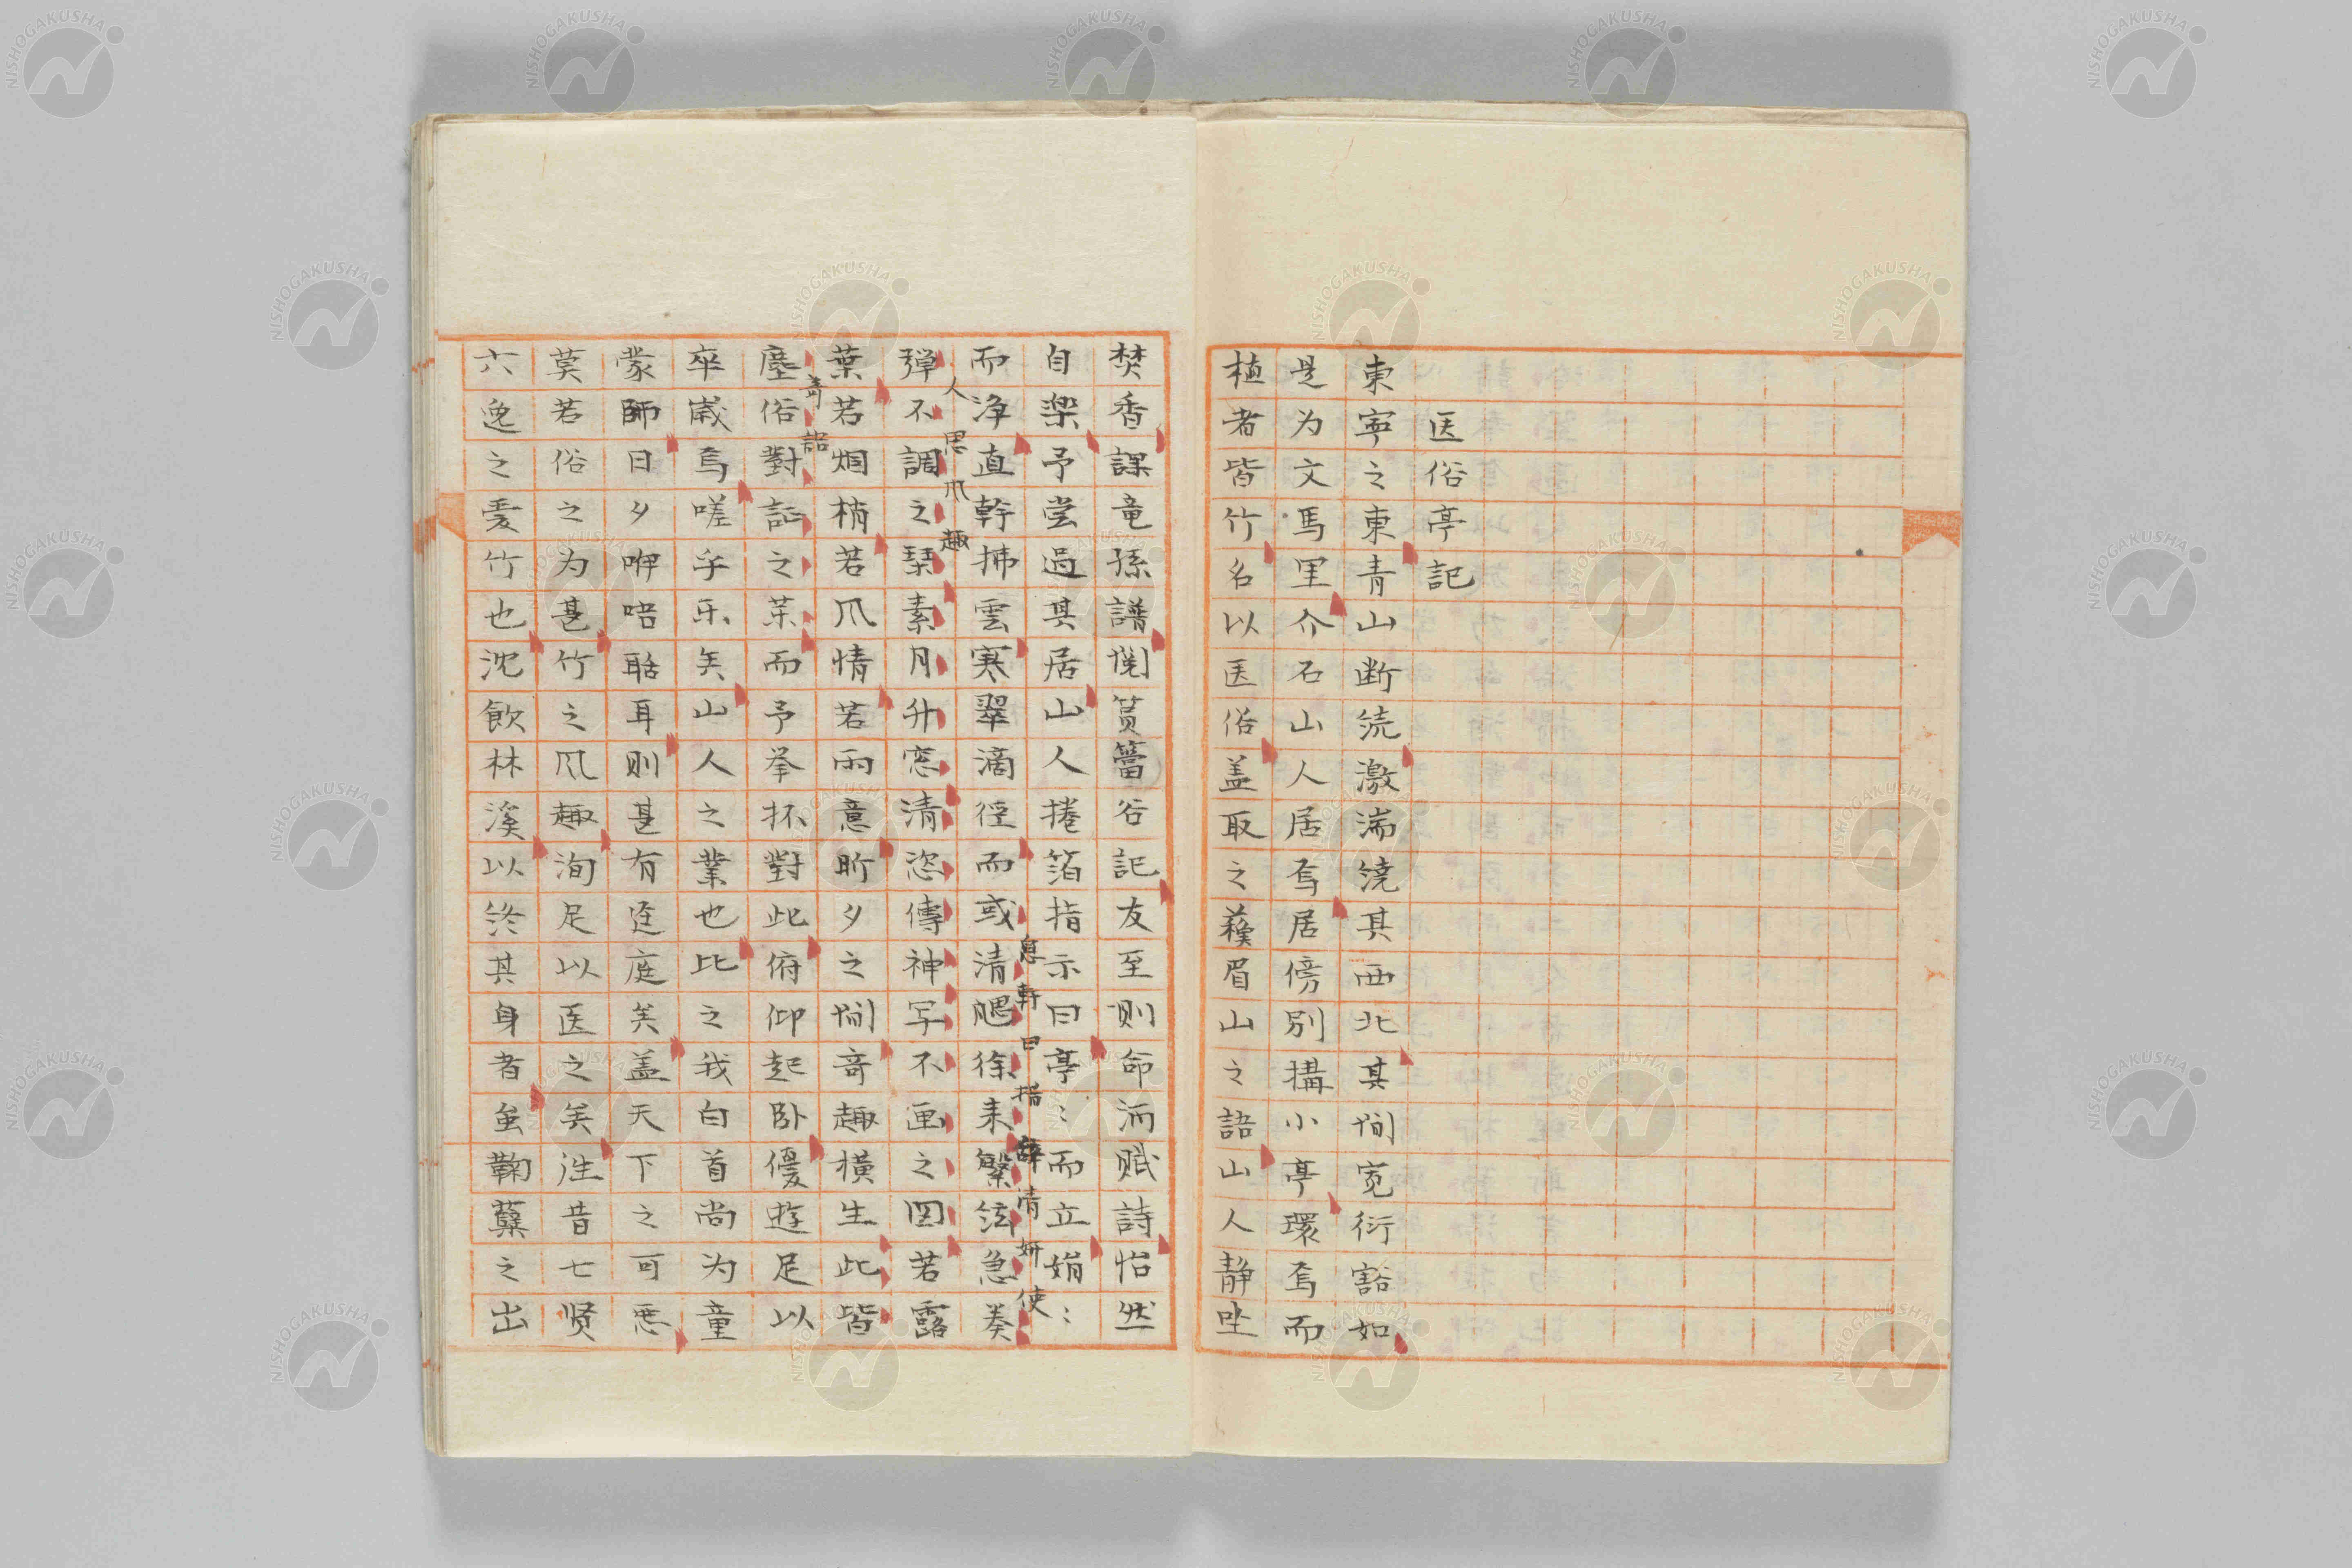 医俗亭記
東寧之東青山断続激湍繞其西北其间宽衍豁如
是为文馬里介石山人居焉居傍別搆小亭環焉而
植者皆竹名以医俗盖取之蘓眉山之語山人静坐
焚香課竜孫譜闲筼簹谷記友至則命洒賦詩怡然
自樂予尝過其居山人捲箔指示曰亭:而立娟:
息軒曰指辭清妍使
而浄直幹拂雲寒翠滴徑而或清飔徐来繁絃急奏
人思爪趣
弾不調之琴素月升窓清恣傳神写不画之図若露
葉若烟梢若爪情若雨意昕夕之间奇趣横生此皆
奇詔
塵俗對証之药而予挙抔對此俯仰起卧優遊足以
卒歳焉嗟乎乐矣山人之業也比之我白首尚为童
蒙師日夕咿唔聒耳則甚有迳庭矣盖天下之可悪
莫若俗之为甚竹之爪趣洵足以医之矣往昔七贤
六逸之爱竹也沈飲林溪以終其身者虽鞠蘖之出
NISHOGAKUSHA